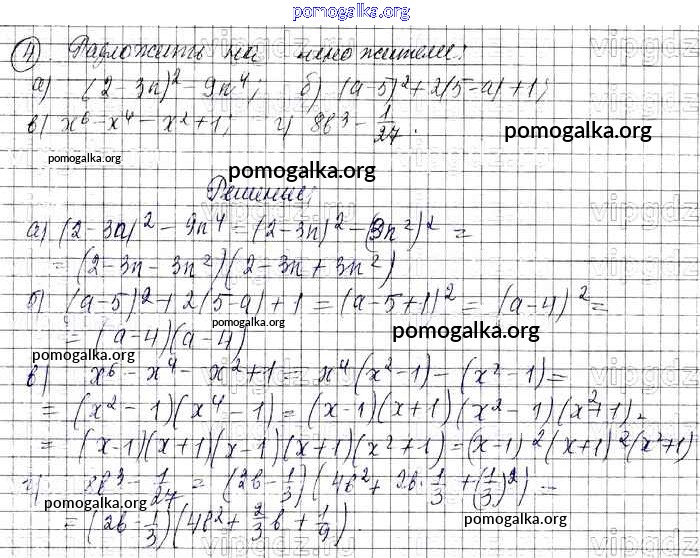 pomogalka.org
4. Разложить на множители:
а) (2-3n)² - 9n⁴; б) (a-5)² + 2(5-a) + 1;
в) x⁶ - x⁴ - x² + 1; г) 8b³ - 1/27.
pomogalka.org
pomogalka.org
pomogalka.org
Решение:
а) (2-3n)² - 9n⁴ = (2-3n)² - (3n²)² =
= (2-3n-3n²)(2-3n+3n²)
б) (a-5)² + 2(5-a) + 1 = (a-5+1)² = (a-4)² =
pomogalka.org
= (a-4)(a-4)
pomogalka.org
pomogalka.org
в) x⁶ - x⁴ - x² + 1 = x⁴(x²-1) - (x²-1) =
= (x²-1)(x⁴-1) = (x-1)(x+1)(x²-1)(x²+1) =
= (x-1)(x+1)(x-1)(x+1)(x²+1) = (x-1)²(x+1)²(x²+1)
г) 8b³ - 1/27 = (2b - 1/3)(4b² + 2b · 1/3 + (1/3)²) =
pomogalka.org
pomogalka.org
= (2b - 1/3)(4b² + 2/3 b + 1/9).
vipgdz.ru